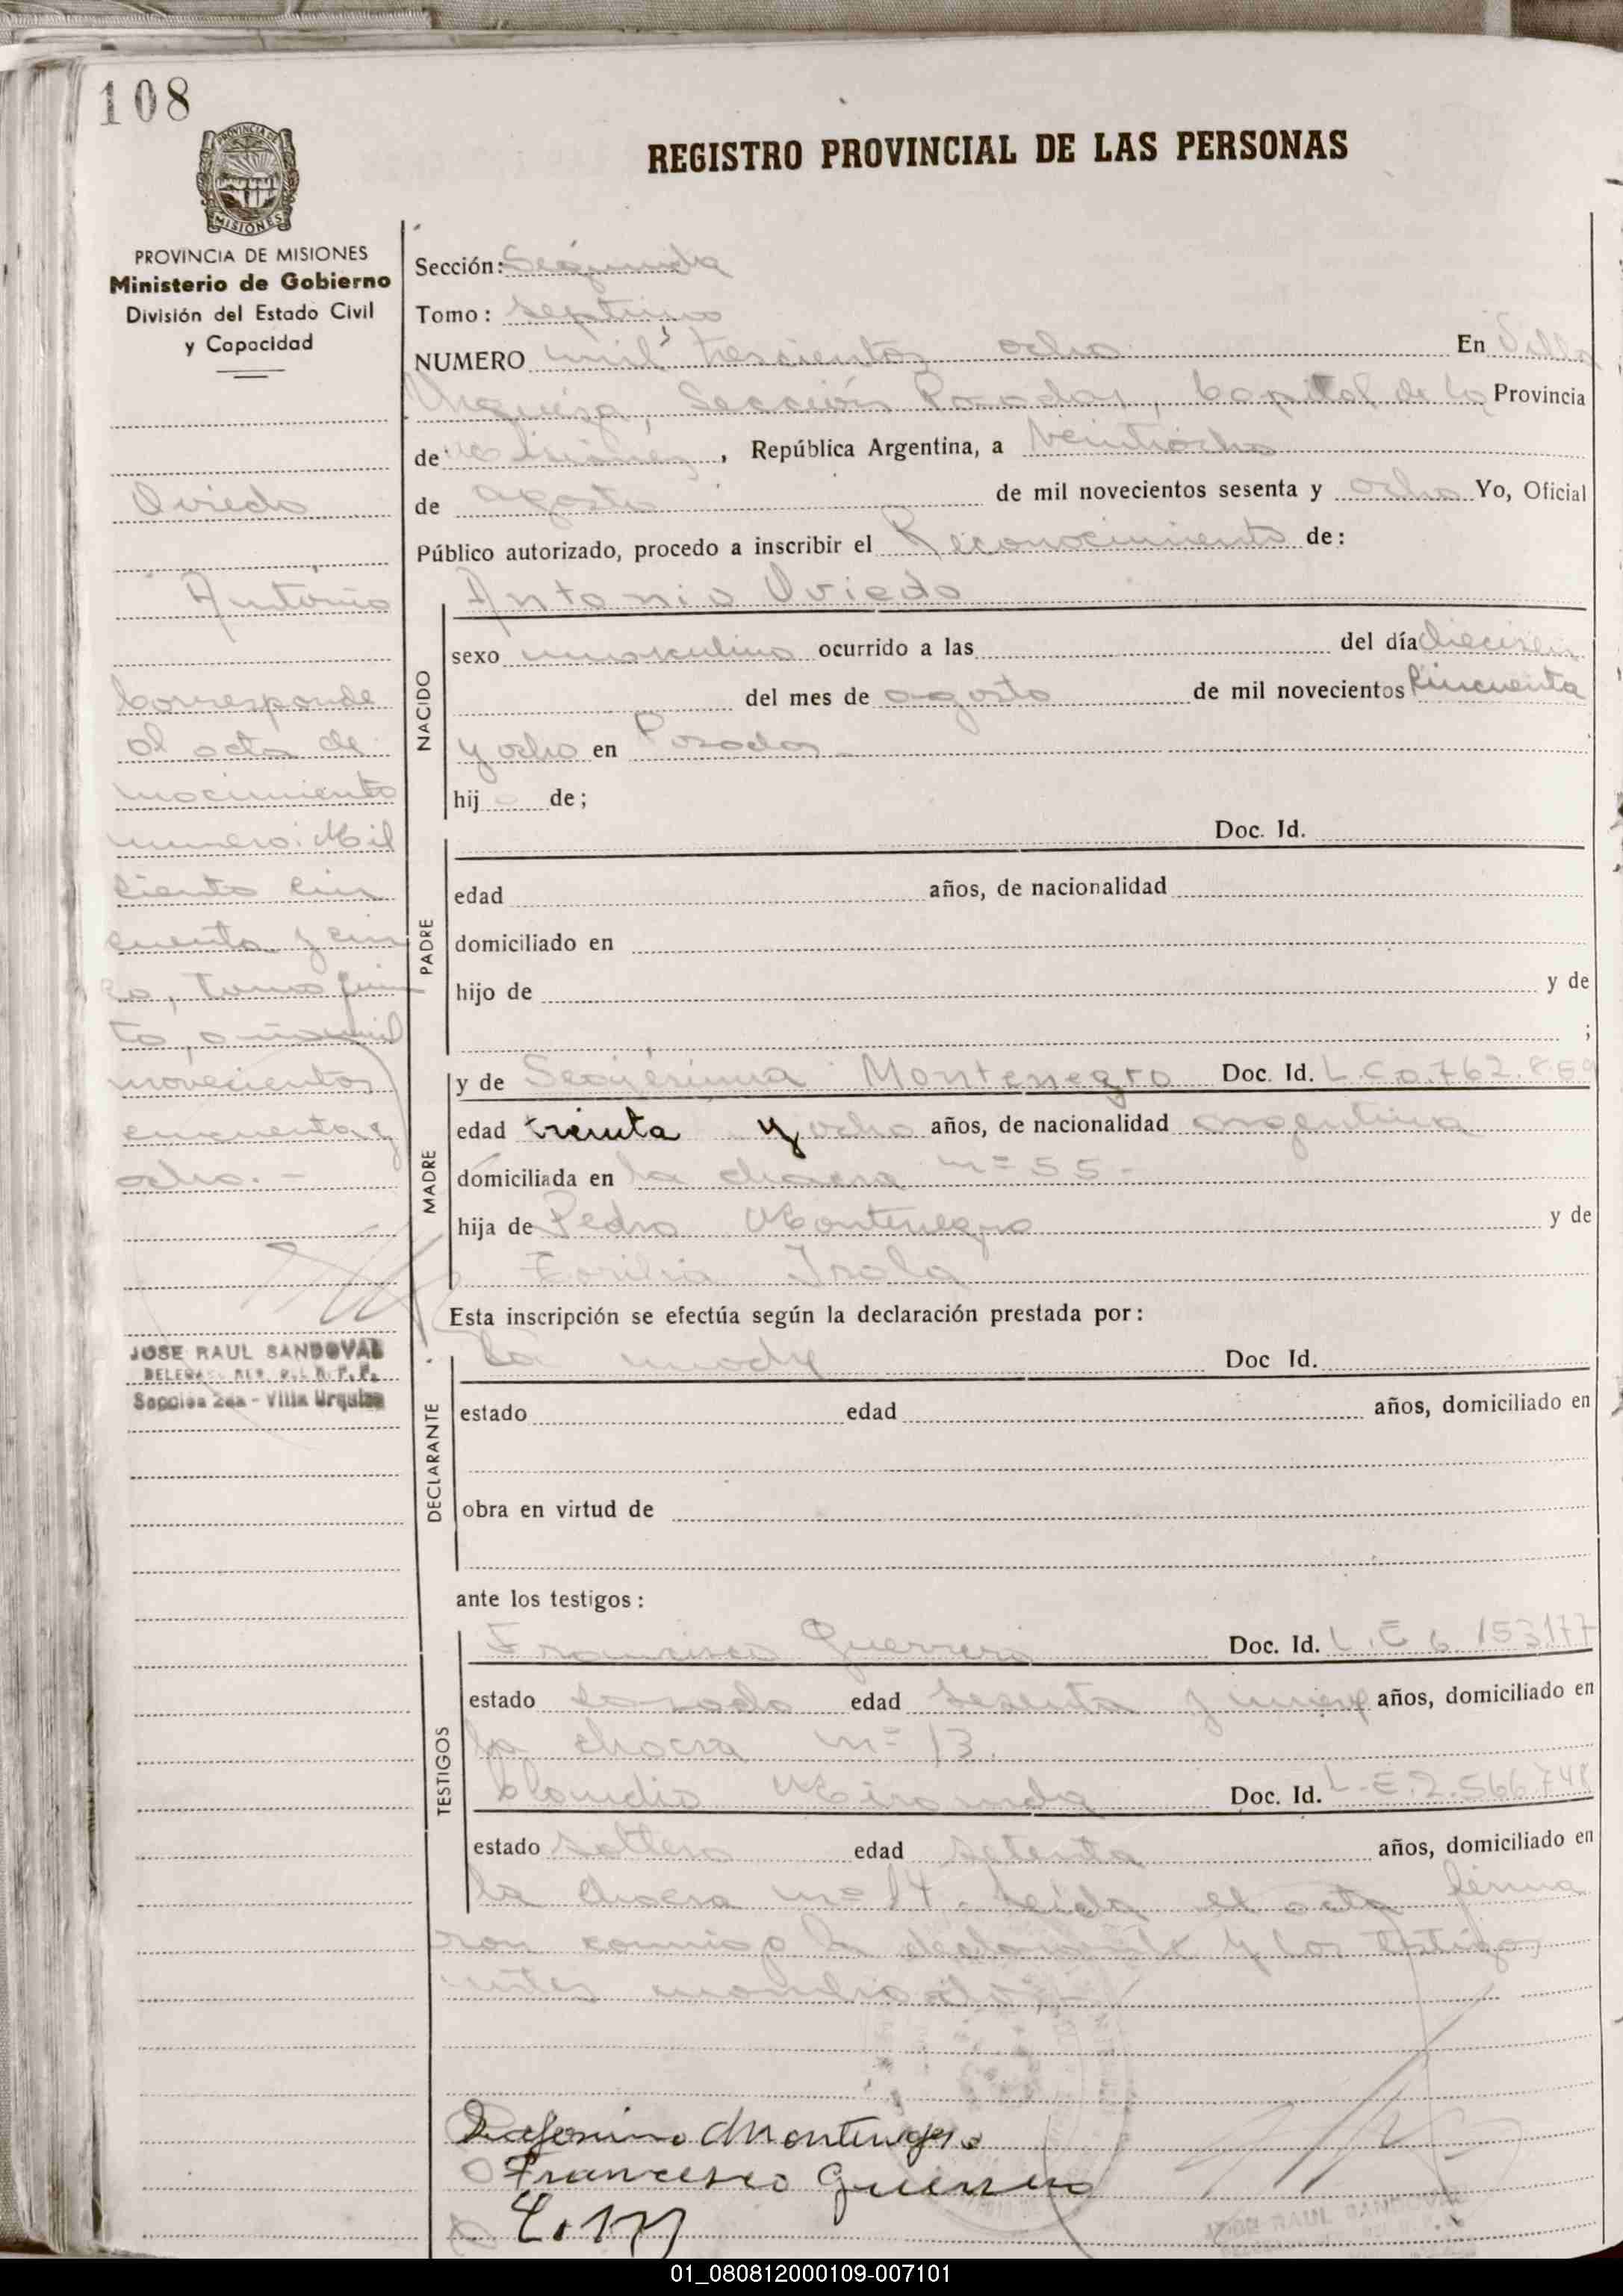 108
REGISTRO PROVINCIAL DE LAS PERSONAS
PROVINCIA DE
MISIONES
PROVINCIA DE MISIONES
Ministerio de Gobierno
División del Estado Civil
y Capacidad
Oviedo
Antonio
Corresponde
al acta de
nacimiento
numero: Mil
ciento cin
cuenta y cin
co, tomo quin
to, año mil
novecientos
cincuenta y
ocho. -
JOSE RAUL SANDOVAL
Sección 2da - Villa Urquiza
Sección: Segunda
Tomo: septimo
NUMERO mil trescientos ocho En Villa
Urquiza, Sección Posadas, Capital de la Provincia
de Misiones, República Argentina, a veintiocho
de agosto de mil novecientos sesenta y ocho Yo, Oficial
Público autorizado, procedo a inscribir el Reconocimiento de:
Antonio Oviedo
NACIDO
sexo masculino ocurrido a las del día dieciseis
del mes de agosto de mil novecientos Cincuenta
y ocho en Posadas
hijo de;
PADRE
Doc. Id.
edad años, de nacionalidad
domiciliado en
hijo de y de
;
MADRE
y de Montenegro Doc. Id. L.C.0.762.869
edad treinta y ocho años, de nacionalidad argentina
domiciliada en la chacra nº 55 -
hija de Pedro Montenegro y de
Isola
Esta inscripción se efectúa según la declaración prestada por:
DECLARANTE
La madre Doc Id.
estado edad años, domiciliado en
obra en virtud de
ante los testigos:
TESTIGOS
Francisco Guerrero Doc. Id. L.E 6.153177
estado casado edad sesenta y nueve años, domiciliado en
la chacra nº 13.
Claudio Miranda Doc. Id. L.E.2.566.748
estado soltero edad setenta años, domiciliado en
la chacra nº 14. Leida el acta firma
ron conmigo la declarante y los testigos
antes mencionados,-
Montenegro
Francisco Guerrero
RAUL SANDOVAL
01_080812000109-007101